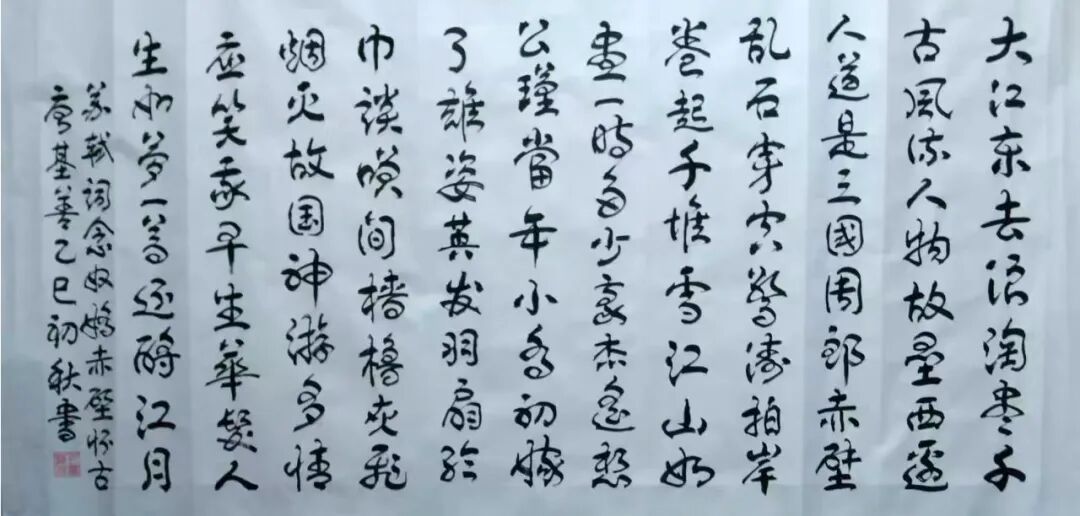 大江东去浪淘尽千
古风流人物故垒西邊
人道是三國周郎赤壁
乱石穿空驚涛拍岸
卷起千堆雪江山如
画一时多少豪杰遥想
公瑾當年小乔初嫁
了雄姿英发羽扇纶
巾谈笑间檣櫓灰飞
烟灭故国神游多情
应笑我早生華髮人
生如梦一尊还酹江月
苏轼词念奴娇赤壁怀古
基善乙巳初秋書